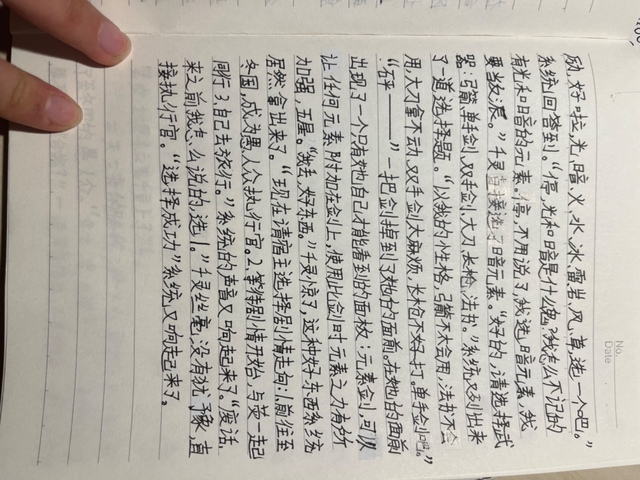 No.
Date
励,好啦光、暗、火、水、冰、雷、岩、风、草,选一个吧。"
系统回答到。"停,光和暗是什么鬼?我怎么不记的
有光和暗的元素。停,不用说了,我选暗元素,我
要当反派。"千灵直接选了暗元素。"好的,请选择武
器:弓箭、单手剑、双手剑、大刀、长枪、法书。"系统又列出来
了一道选择题。"以我的性格,弓箭不太会用,法书不会
用,大刀拿不动,双手剑太麻烦,长枪不好打。单手剑吧。"
"砰——"一把剑掉到了她的面前。在她的面前
出现了一个只有她自己才能看到的面板:元素剑,可以
让任何元素附加在剑上,使用此剑时元素之力有所
加强,五星。"我丢,好东西。"千灵惊了,这种好东西系统
居然拿出来了。"现在请宿主选择剧情走向:1.前往至
冬国,成为愚人众执行官。2.等待剧情开始,与荧一起
同行3.自己去旅行。"系统的声音又响起来了。"废话,
来之前我怎么说的,选1。"千灵丝毫没有犹豫,直
接执行官。"选择成功"系统又响起来了。